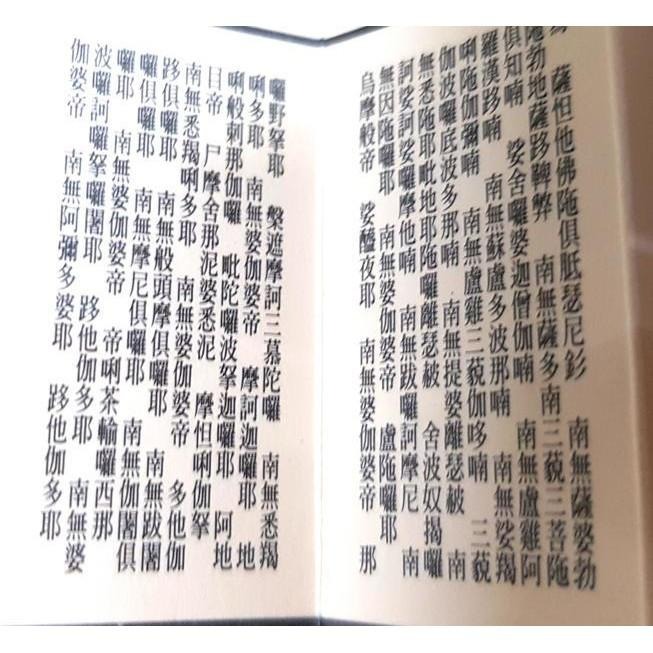 薩怛他佛陁俱胝瑟尼釤 南無薩婆勃
陁勃地薩跢鞞弊 南無薩多南三藐三菩陁
俱知喃 娑舍囉婆迦僧伽喃 南無盧雞阿
羅漢跢喃 南無蘇盧多波那喃 南無娑羯
唎陁伽彌喃 南無盧雞三藐伽哆喃 三藐
伽波囉底波多那喃 南無提婆離瑟赧 南
無悉陁耶毗地耶陁囉離瑟赧 舍波奴揭囉
訶娑訶娑囉摩他喃 南無跋囉訶摩尼 南
無因陁囉耶 南無婆伽婆帝 盧陁囉耶
烏摩般帝 娑醯夜耶 南無婆伽婆帝 那
囉野拏耶 槃遮摩訶三慕陀囉 南無悉羯
唎多耶 南無婆伽婆帝 摩訶迦囉耶 地
唎般剌那伽囉 毗陀囉波拏迦囉耶 阿地
目帝 尸摩舍那泥婆悉泥 摩怛唎伽拏
南無悉羯唎多耶 南無婆伽婆帝 多他伽
跢俱囉耶 南無般頭摩俱囉耶 南無跋闍
囉俱囉耶 南無摩尼俱囉耶 南無伽闍俱
囉耶 南無婆伽婆帝 帝唎茶輸囉西那
波囉訶囉拏囉闍耶 跢他伽多耶 南無婆
伽婆帝 南無阿彌多婆耶 跢他伽多耶